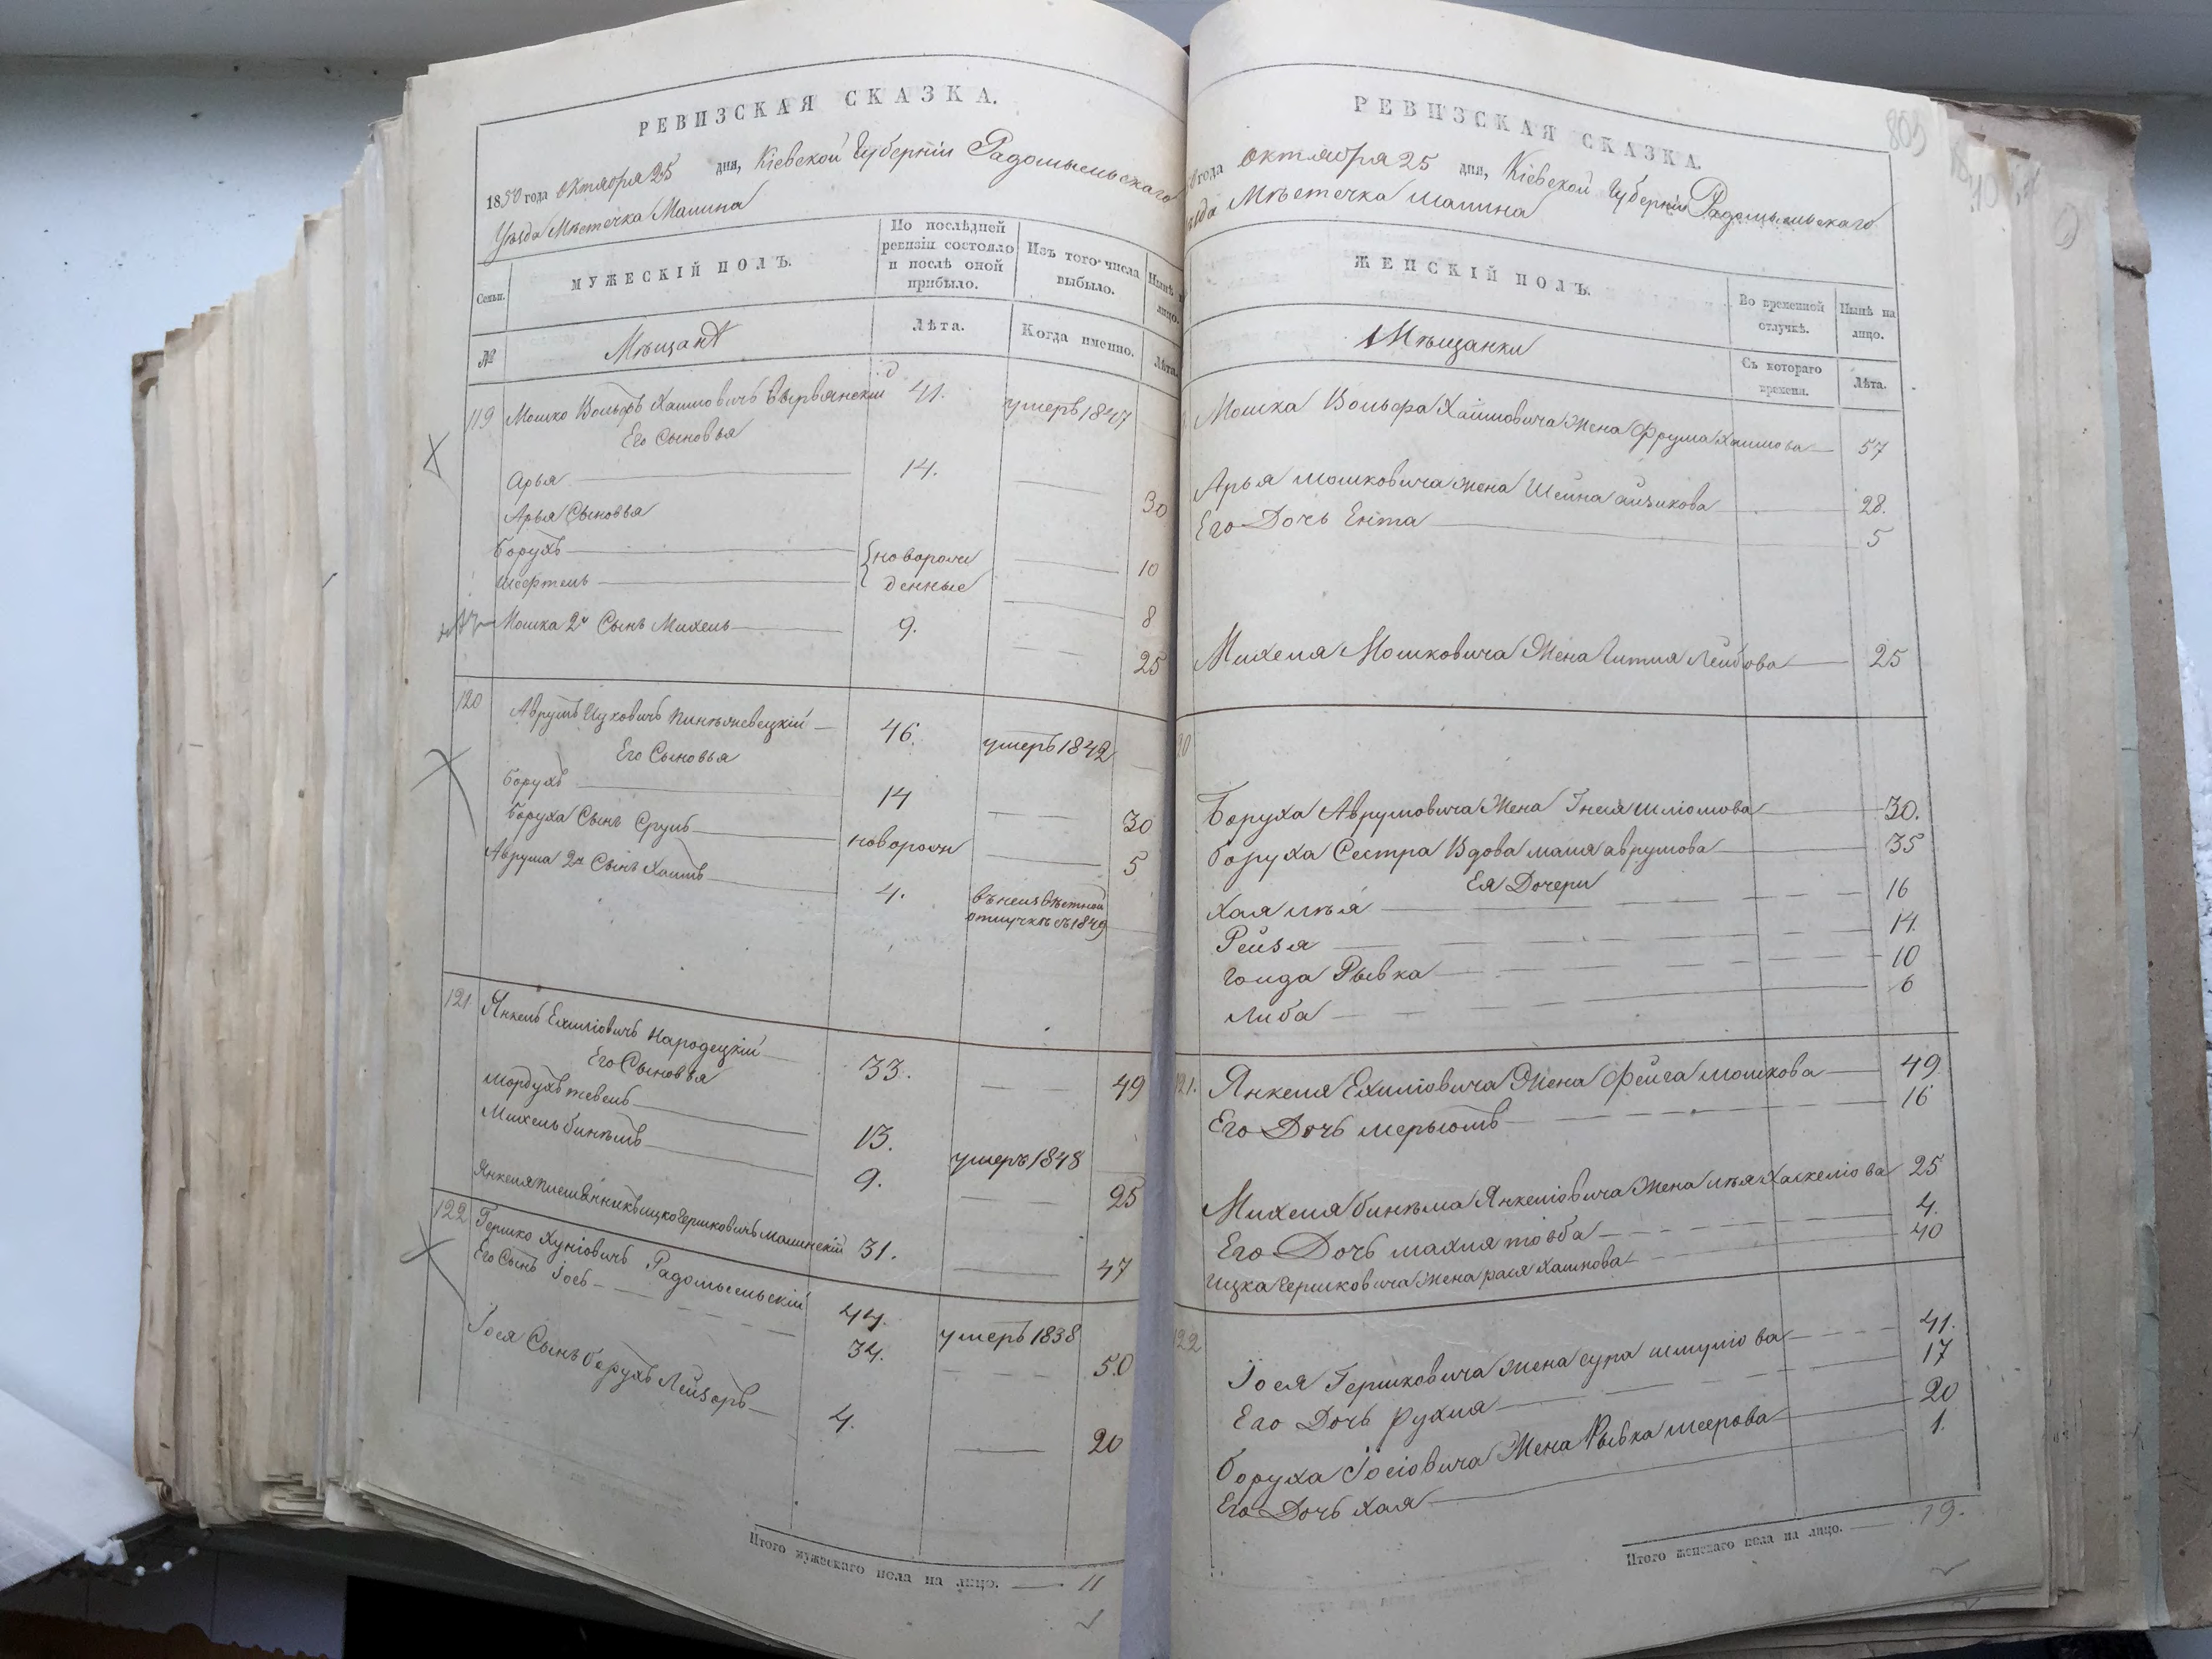 РЕВИЗСКАЯ СКАЗКА.
1850 года Октября 25 дня, Кіевской Губерніи Радомысльскаго
Уѣзда Мѣстечка Малина
Семьи.
МУЖЕСКІЙ ПОЛЪ.
По послѣдней ревизіи состояло и послѣ оной прибыло.
Изъ того числа выбыло.
Нынѣ на лицо.
№
Мѣщане
Лѣта.
Когда именно.
Лѣта.
119 Мошко Вольфъ Хаимовичъ Вырвянскій 41. умеръ 1847
Его Сыновья
Арья 14. 30
Арья Сыновья
Борухъ новорож 10
Шефтель денные 8
Мошка 2й Сынъ Михель 9. 25
120 Аврумъ Ицковичъ 46. умеръ 1842
Его Сыновья
Борухъ 14 30
Боруха Сынъ Сруль новорожд 5
Аврума 2й Сынъ Хаимъ 4. въ неизвѣстной
отлучкѣ съ 1849
121 Янкель Ехиліовичъ Народецкій 33. 49
Его Сыновья
Мордухъ тевель 13. умеръ 1848
Михель бинѣмъ 9. 25
Янкеля племянникъ ицко Гершковичъ Малинскій 31. 47
122 Гершко Хуніовичъ Радомысльскій 44. умеръ 1838
Его Сынъ Іось 34. 50
Іося Сынъ борухъ Лейзоръ 4. 20
Итого мужескаго пола на лицо. 11
РЕВИЗСКАЯ СКАЗКА.
809
года Октября 25 дня, Кіевской Губерніи Радомысльскаго
Мѣстечка малина
ЖЕНСКІЙ ПОЛЪ.
Во временной отлучкѣ.
Нынѣ на лицо.
Мѣщанки
Съ котораго времени.
Лѣта.
Мошка Вольфа Хаимовича Жена Фрума Хаимова 57
Арья мошковича жена Шейна айзикова 28.
Его Дочь Ента 5
Михеля Мошковича Жена Гитля Лейбова 25
20
Боруха Аврумовича Жена Гнеся шліомова 30.
Боруха Сестра Вдова маля аврумова 35
Ея Дочери
Хая лѣя 16
Рейзя 14.
Голда Рывка 10
Либа 6
121. Янкеля Ехиліовича Жена Фейга мошкова 49
Его Дочь мерьюмъ 16
Михеля бинѣма Янкеліовича Жена лѣя Хаскеліова 25
Его Дочь малка тіовба 4.
Ицка Гершковича Жена рася хаимова 40
122
Іося Гершковича жена сура шмуліова 41.
Его Дочь рухля 17
боруха Іосіовича Жена Рывка меерова 20
Его Дочь хая 1.
Итого женскаго пола на лицо. 19.